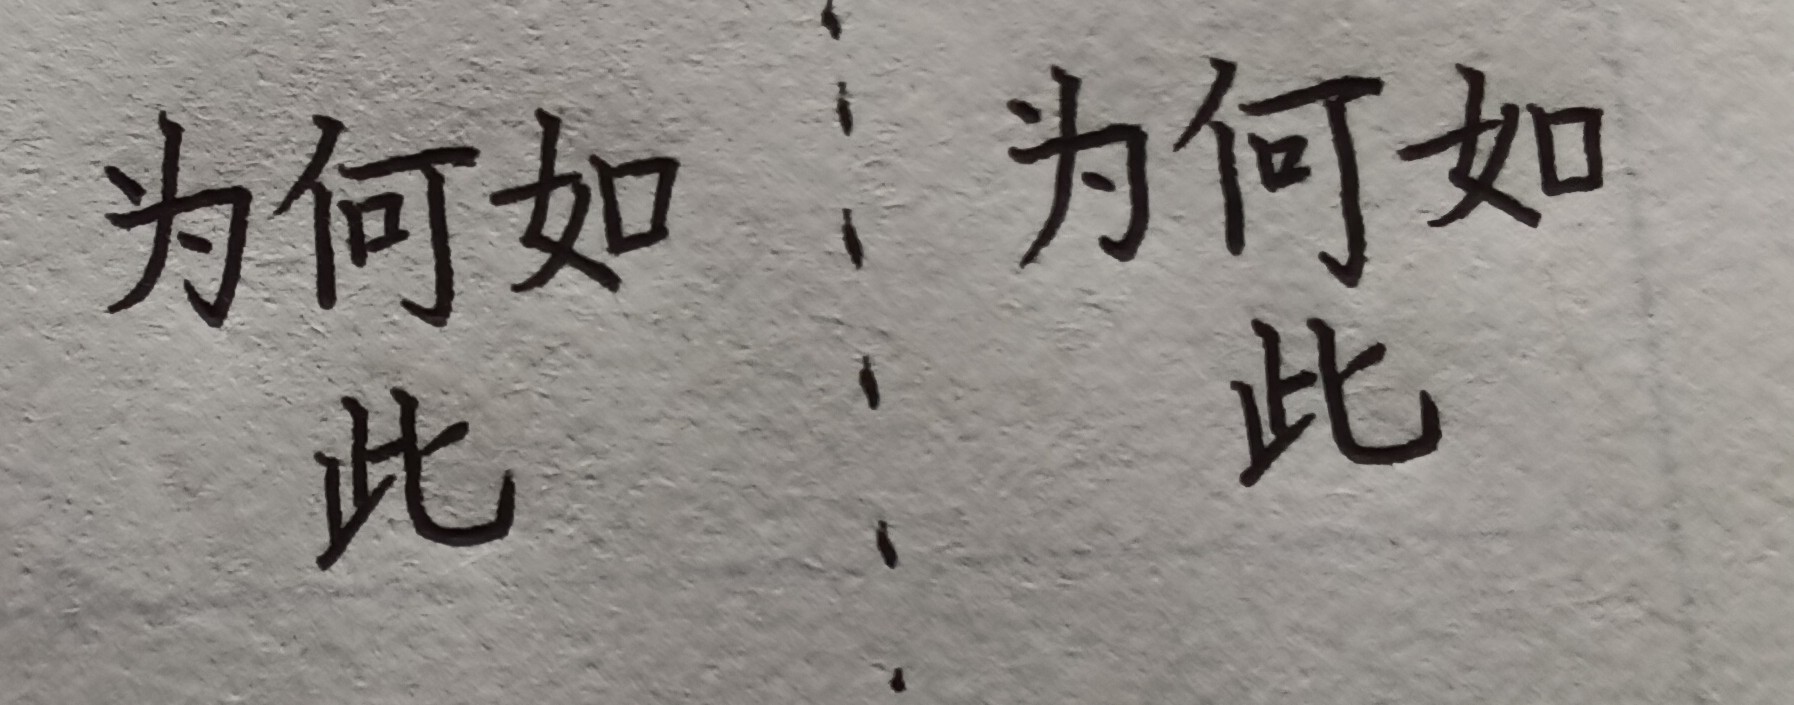 为何如
此
为何如
此